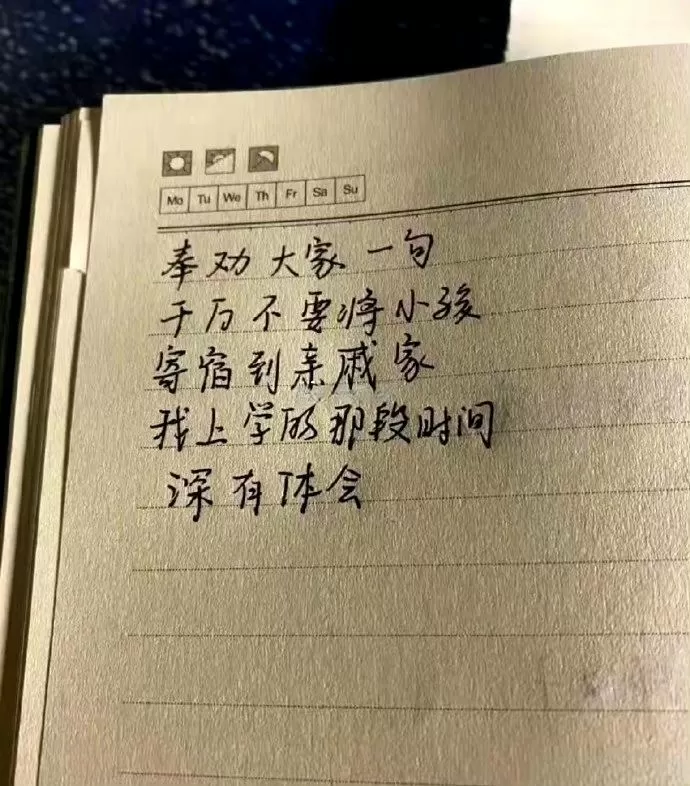 Mo Tu We Th Fr Sa Su
奉劝大家一句
千万不要将小孩
寄宿到亲戚家
我上学的那段时间
深有体会